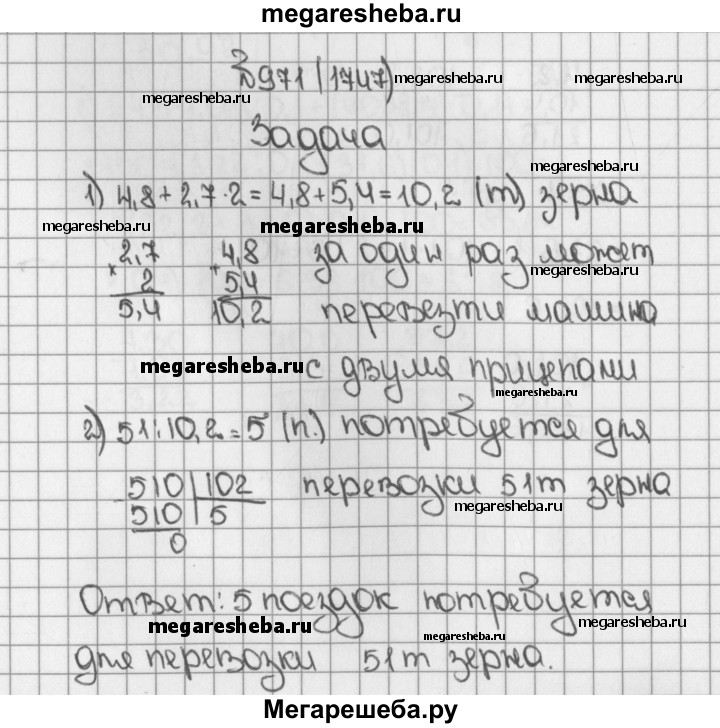 megaresheba.ru
№971 (1747) megaresheba.ru
megaresheba.ru
Задача
megaresheba.ru
1) 4,8 + 2,7 · 2 = 4,8 + 5,4 = 10,2 (т) зерна
megaresheba.ru megaresheba.ru
2,7 4,8 за один раз может
× 2 + 5,4 megaresheba.ru
5,4 10,2 перевезти машина
megaresheba.ru с двумя прицепами
megaresheba.ru
2) 51 : 10,2 = 5 (п.) потребуется для
510 102 перевозки 51т зерна
510 5 megaresheba.ru
0
megaresheba.ru
Ответ: 5 поездок потребуется
megaresheba.ru megaresheba.ru
для перевозки 51т зерна.
megaresheba.ru
Мегарешеба.ру